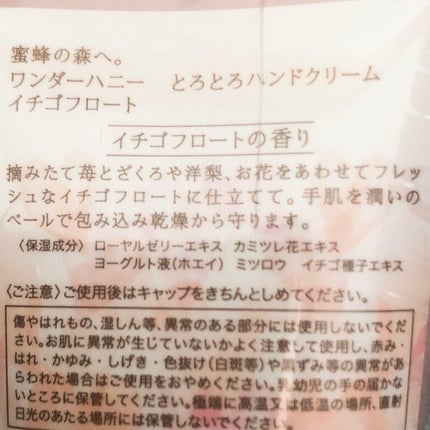 蜜蜂の森へ。
ワンダーハニー　とろとろハンドクリーム
イチゴフロート
イチゴフロートの香り
摘みたて苺とざくろや洋梨、お花をあわせてフレッ
シュなイチゴフロートに仕立てて。手肌を潤いの
ベールで包み込み乾燥から守ります。
〈保湿成分〉ローヤルゼリーエキス　カミツレ花エキス
ヨーグルト液(ホエイ)　ミツロウ　イチゴ種子エキス
〈ご注意〉ご使用後はキャップをきちんとしめてください。
傷やはれもの、湿しん等、異常のある部分には使用しないでくだ
さい。お肌に異常が生じていないかよく注意して使用し、赤み・
はれ・かゆみ・しげき・色抜け(白斑等)や黒ずみ等の異常があ
らわれた場合はご使用をおやめください。乳幼児の手の届かな
いところに保管してください。極端に高温又は低温の場所、直射
日光のあたる場所には保管しないでください。